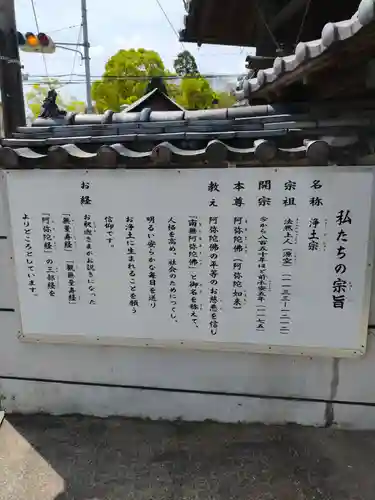 私たちの宗旨
名称 浄土宗
宗祖 法然上人(源空)(一一三三―一二一二)
開宗 今から八百五十年ほど前承安五年(一一七五)
本尊 阿弥陀佛(阿弥陀如来)
教え 阿弥陀佛の平等のお慈悲を信じ
「南無阿弥陀佛」と御名を称えて、
人格を高め、社会のためにつくし、
明るい安らかな毎日を送り
お浄土に生まれることを願う
信仰です。
お経 お釈迦さまがお説きになった
『無量寿経』『観無量寿経』
『阿弥陀経』の三部経を
よりどころとしています。